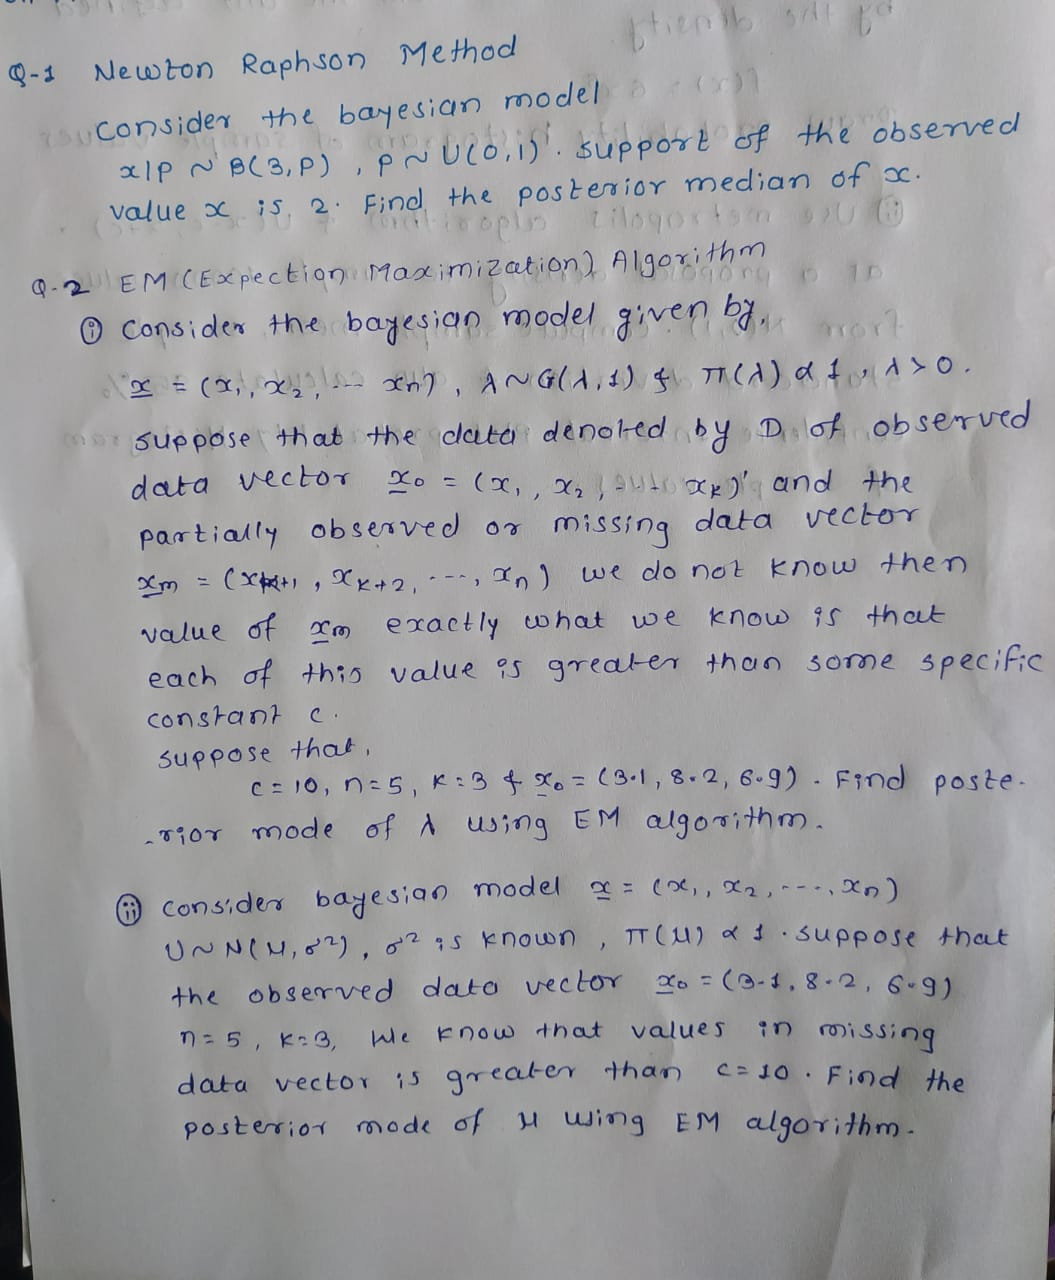 Q-1 Newton Raphson Method
Consider the bayesian model
x|p ~ B(3,P) , P ~ U(0,1). support of the observed
value x is 2. Find the posterior median of x.
Q-2 EM (Expection Maximization) Algorithm
(i) Consider the bayesian model given by,
x = (x₁, x₂, ... xn), λ ~ G(λ,1) & π(λ) ∝ 1, λ > 0.
suppose that the data denoted by D of observed
data vector x₀ = (x₁, x₂, ... xk)' and the
partially observed or missing data vector
xm = (xk+1, xk+2, ..., xn) we do not know then
value of xm exactly what we know is that
each of this value is greater than some specific
constant c.
suppose that,
c = 10, n = 5, k = 3 & x₀ = (3.1, 8.2, 6.9). Find poste-
-rior mode of λ using EM algorithm.
(ii) Consider bayesian model x = (x₁, x₂, ..., xn)
U ~ N(μ, σ²), σ² is known, π(μ) ∝ 1. suppose that
the observed data vector x₀ = (3.1, 8.2, 6.9)
n = 5, k = 3, We know that values in missing
data vector is greater than c = 10. Find the
posterior mode of μ using EM algorithm.